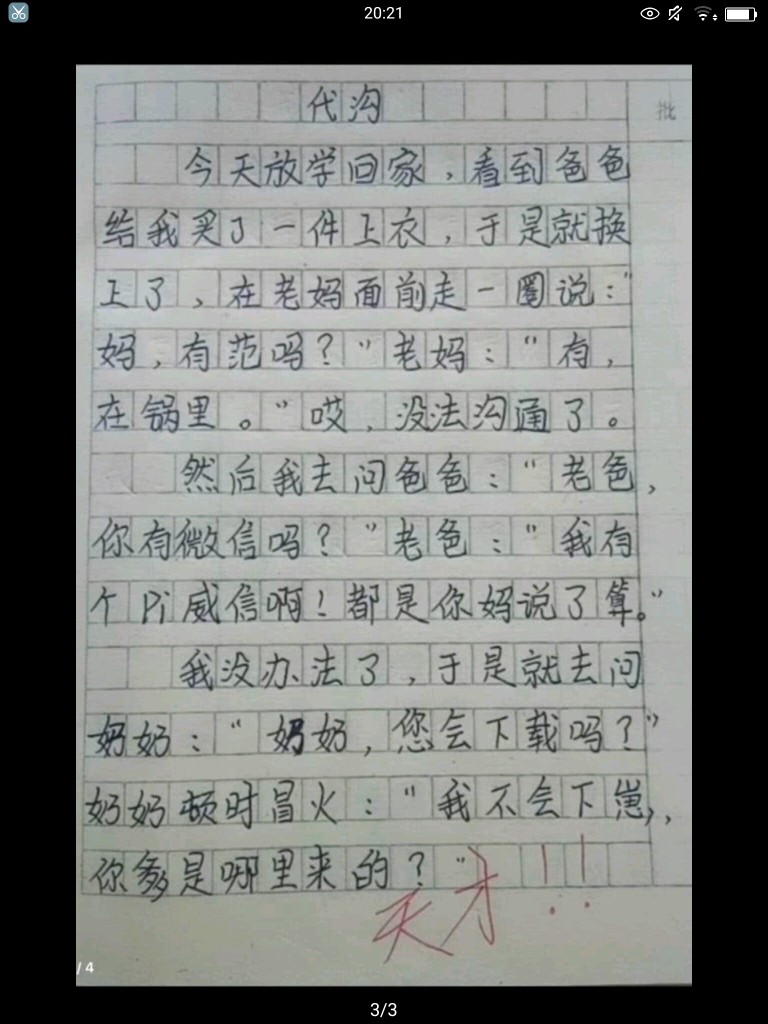 20:21
代沟
批
今天放学回家，看到爸爸
给我买了一件上衣，于是就换
上了，在老妈面前走一圈说：“
妈，有范吗？”老妈：“有，
在锅里。”哎，没法沟通了。
然后我去问爸爸：“老爸，
你有微信吗？”老爸：“我有
个Pi威信啊！都是你妈说了算。”
我没办法了，于是就去问
奶奶：“奶奶，您会下载吗？”
奶奶顿时冒火：“我不会下崽，
你爹是哪里来的？”
天才！！
/ 4
3/3